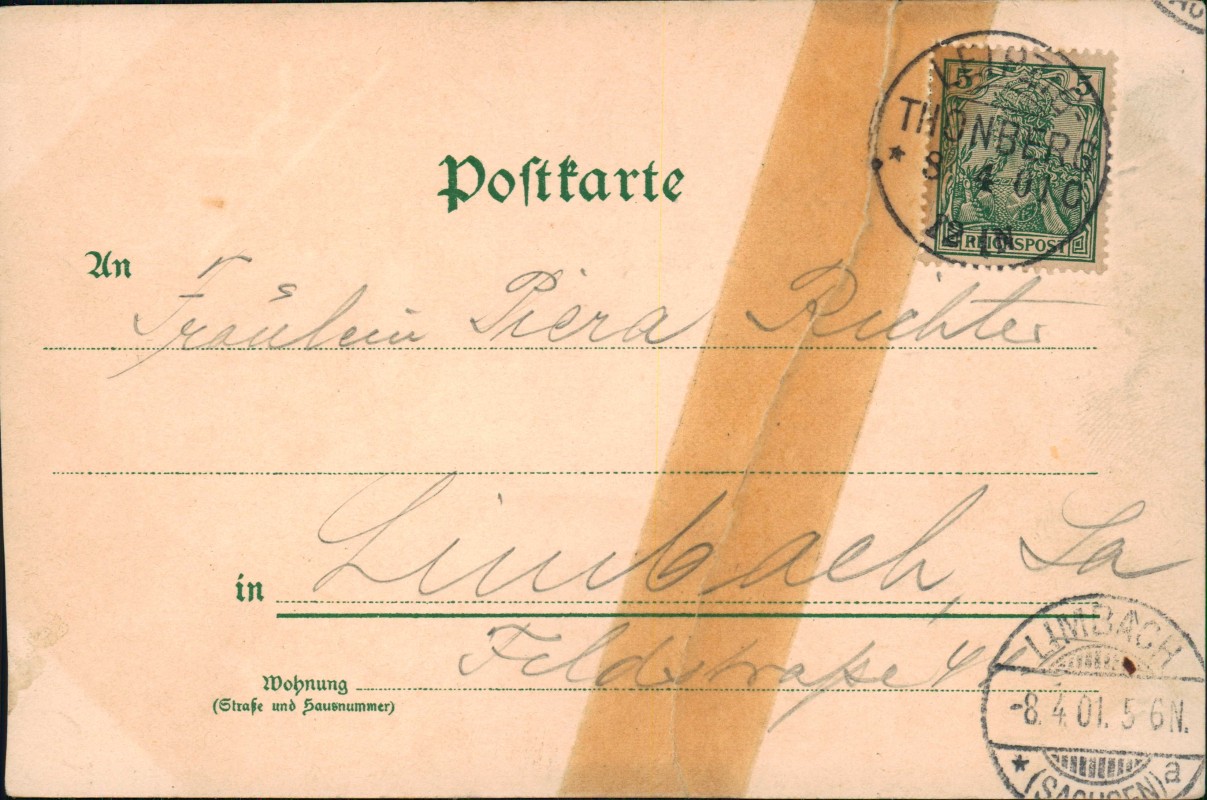 Postkarte
LEIPZIG-
THONBERG
* 8 4 01 C
12 1N
5 5
REICHSPOST
An
Fräulein Piera Richter
in Limbach, Sa
Feldstraße
Wohnung
(Straße und Hausnummer)
LIMBACH
-8.4.01. 5-6N.
* (SACHSEN) a